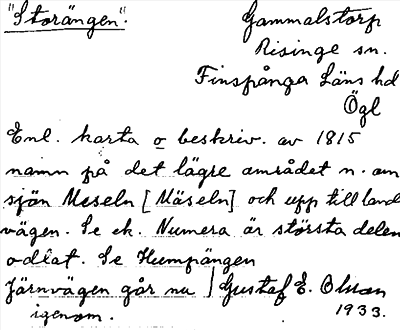 "Storängen".
Gammalstorp
Risinge sn.
Finspånga Läns hd
Ögl
Enl. karta o beskriv. av 1815
namn på det lägre området n. om
sjön Meseln [Mäseln] och upp till land
vägen. Se ek. Numera är största delen
odlat. Se Humpängen
Järnvägen går nu
igenom.
Gustaf E. Olsson
1933.